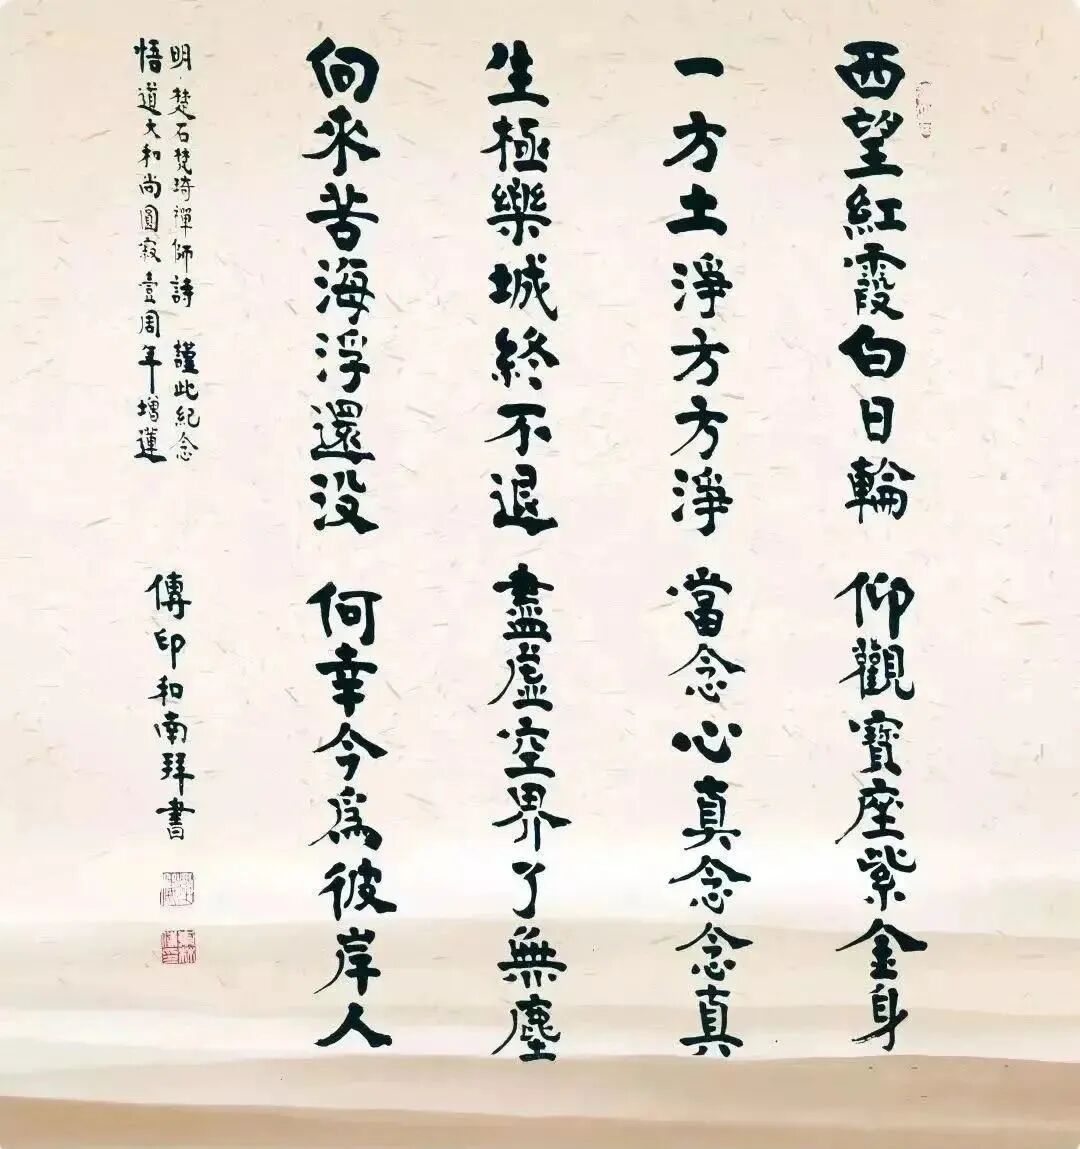 西望紅霞白日輪　仰觀寶座紫金身
一方土淨方方淨　當念心真念念真
生極樂城終不退　盡虛空界了無塵
向來苦海浮還没　何幸今為彼岸人
明楚石梵琦禪師詩　謹此紀念
悟道大和尚圓寂壹周年增蓮
傳印和南拜書